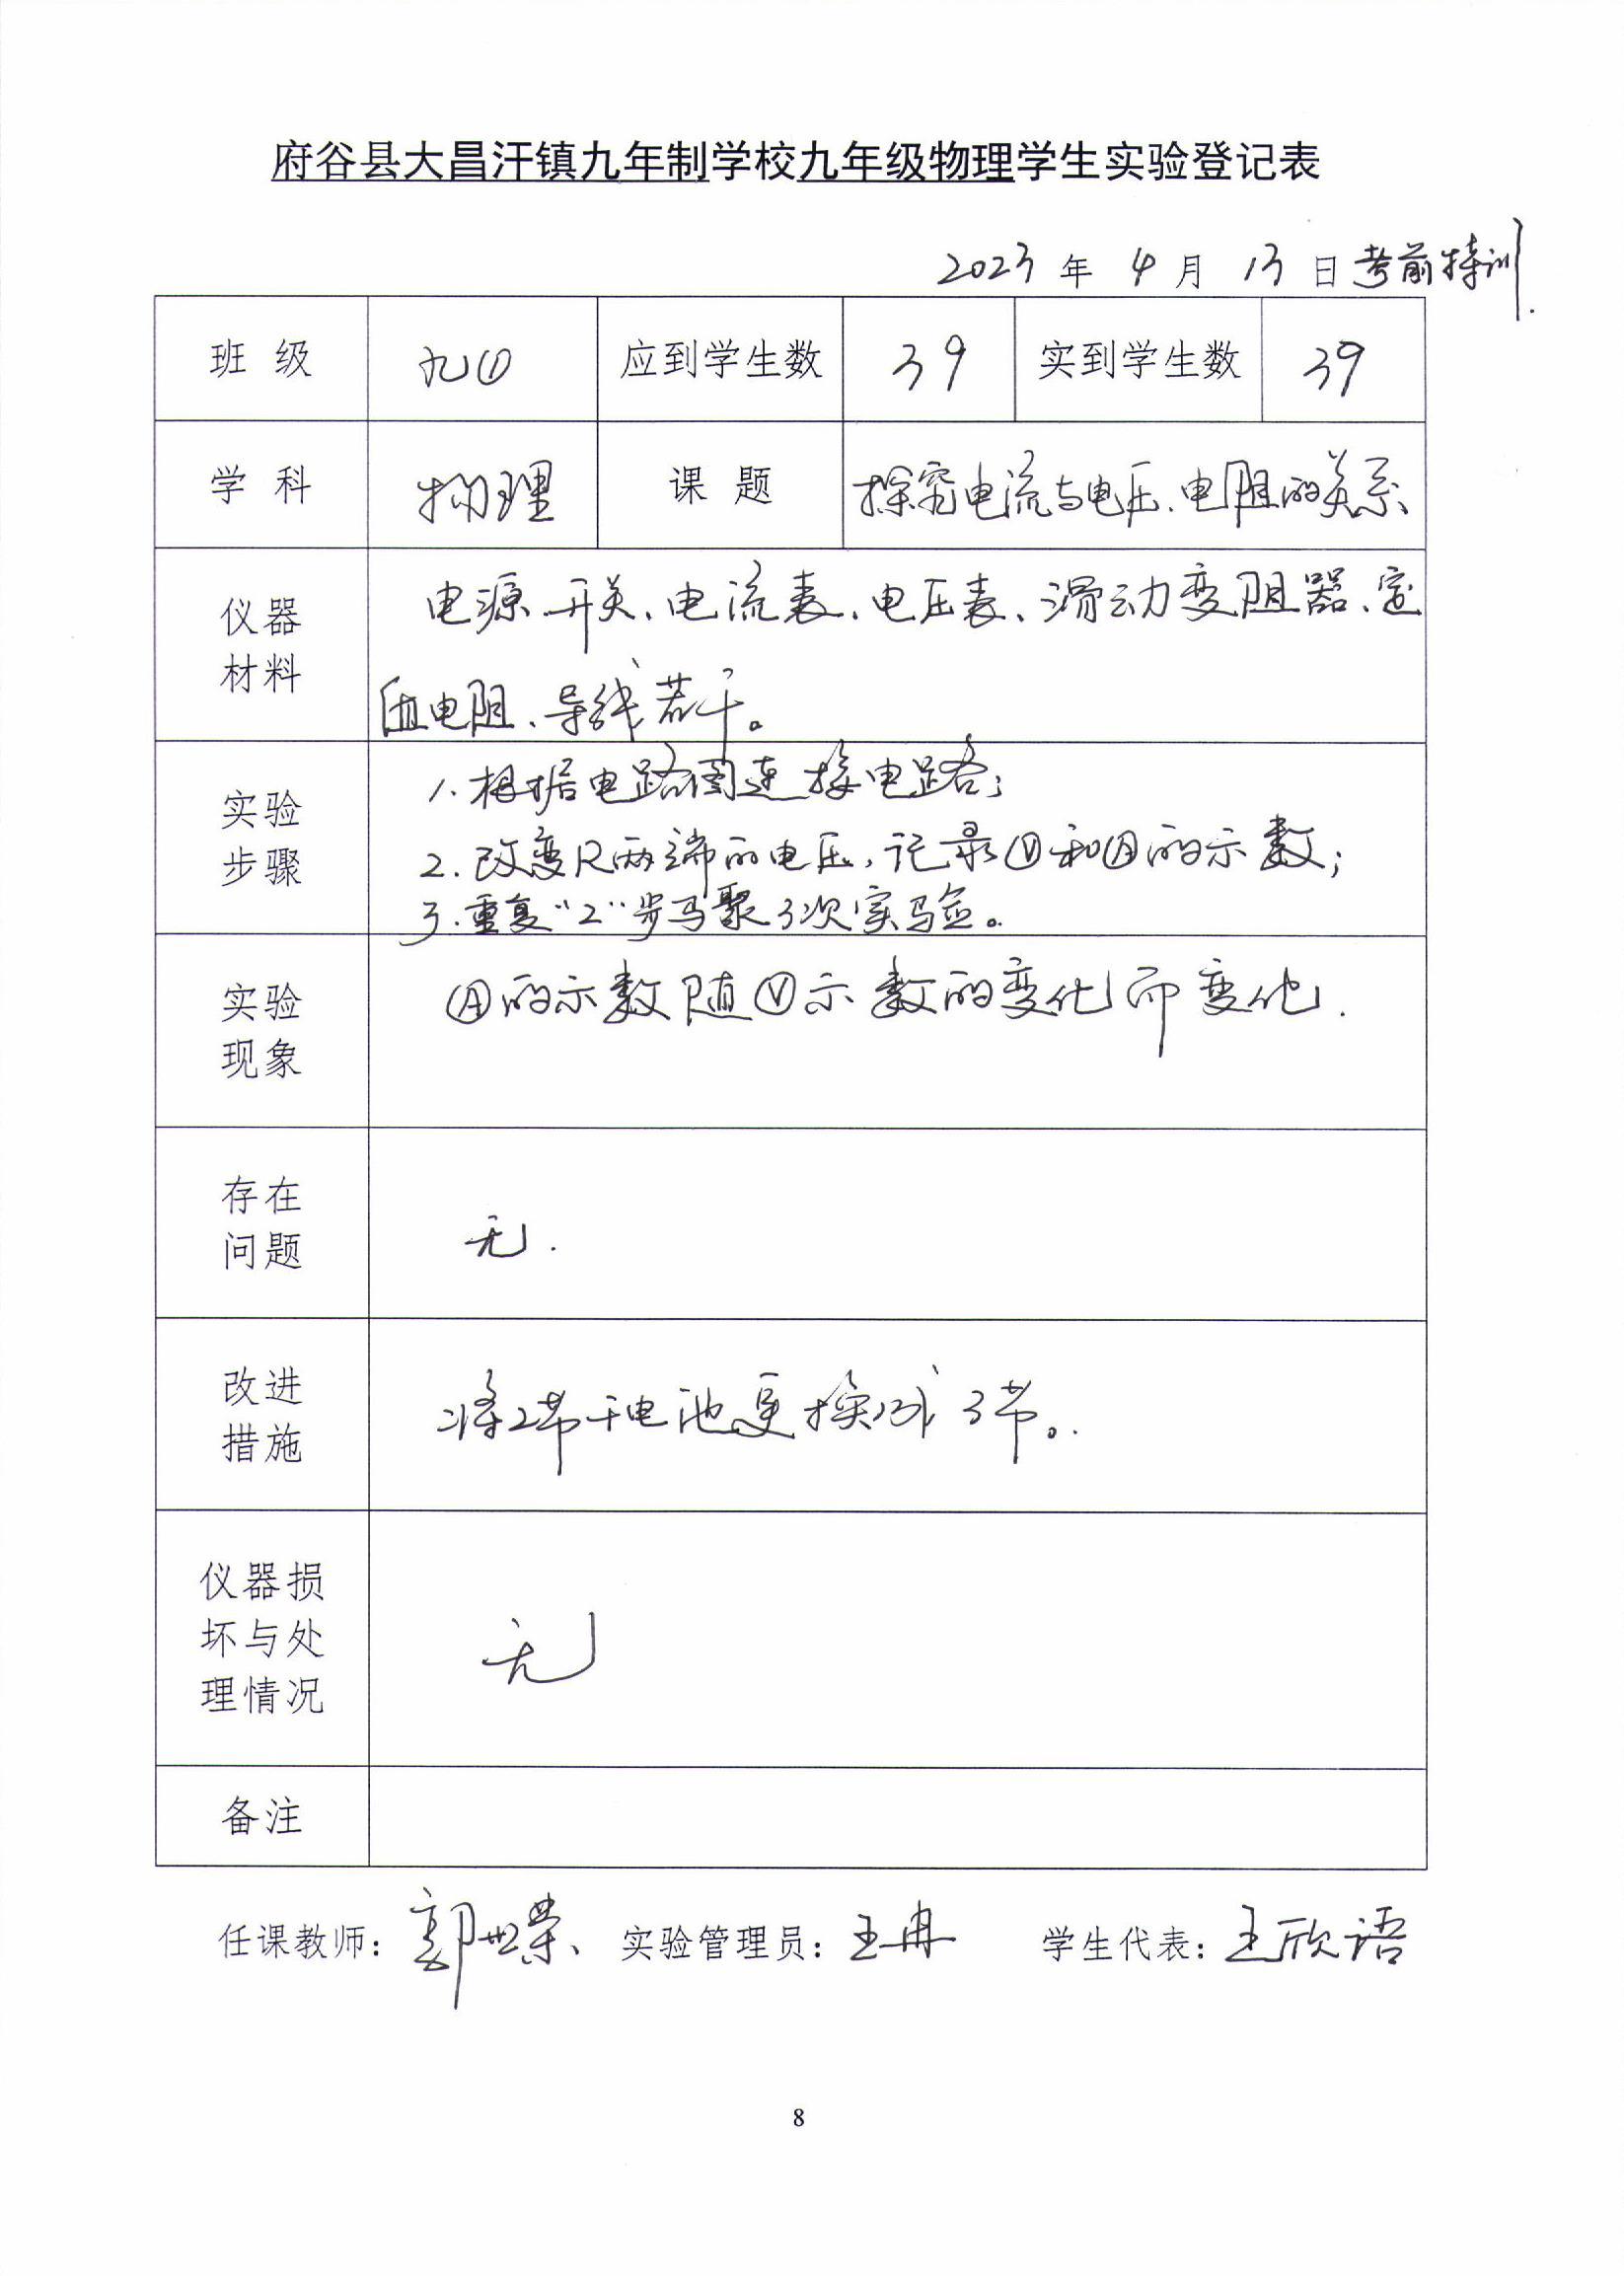 府谷县大昌汗镇九年制学校九年级物理学生实验登记表
2023 年 4 月 13 日 考前特训.
班 级 九① 应到学生数 39 实到学生数 39
学 科 物理 课 题 探究电流与电压、电阻的关系
仪器
材料
电源、开关、电流表、电压表、滑动变阻器、定
值电阻、导线若干。
实验
步骤
1.根据电路图连接电路;
2.改变R两端的电压,记录Ⓥ和Ⓐ的示数;
3.重复“2”步骤3次实验。
实验
现象
Ⓐ的示数随Ⓥ示数的变化而变化.
存在
问题
无.
改进
措施
将2节干电池更换成3节。
仪器损
坏与处
理情况
无
备注
任课教师: 郭世荣 实验管理员: 王冉 学生代表: 王欣语
8